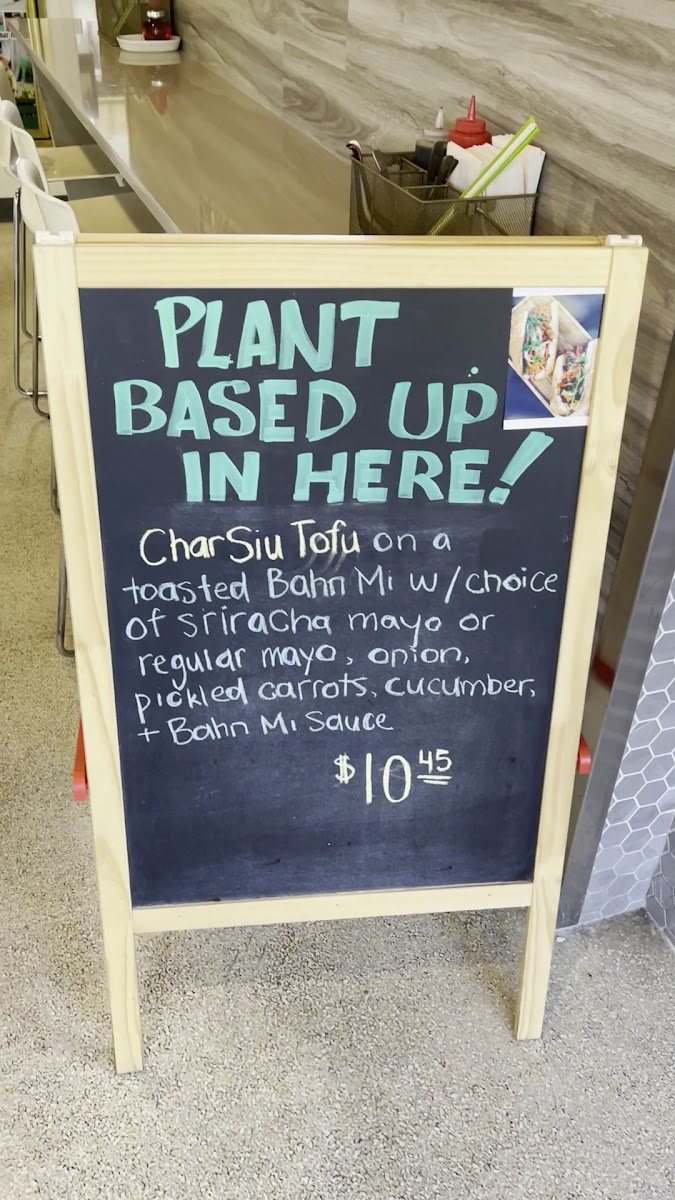 PLANT
BASED UP
IN HERE!
Char Siu Tofu on a
toasted Bahn Mi w/choice
of sriracha mayo or
regular mayo, onion,
pickled carrots, cucumber,
+ Bahn Mi Sauce
$10 45